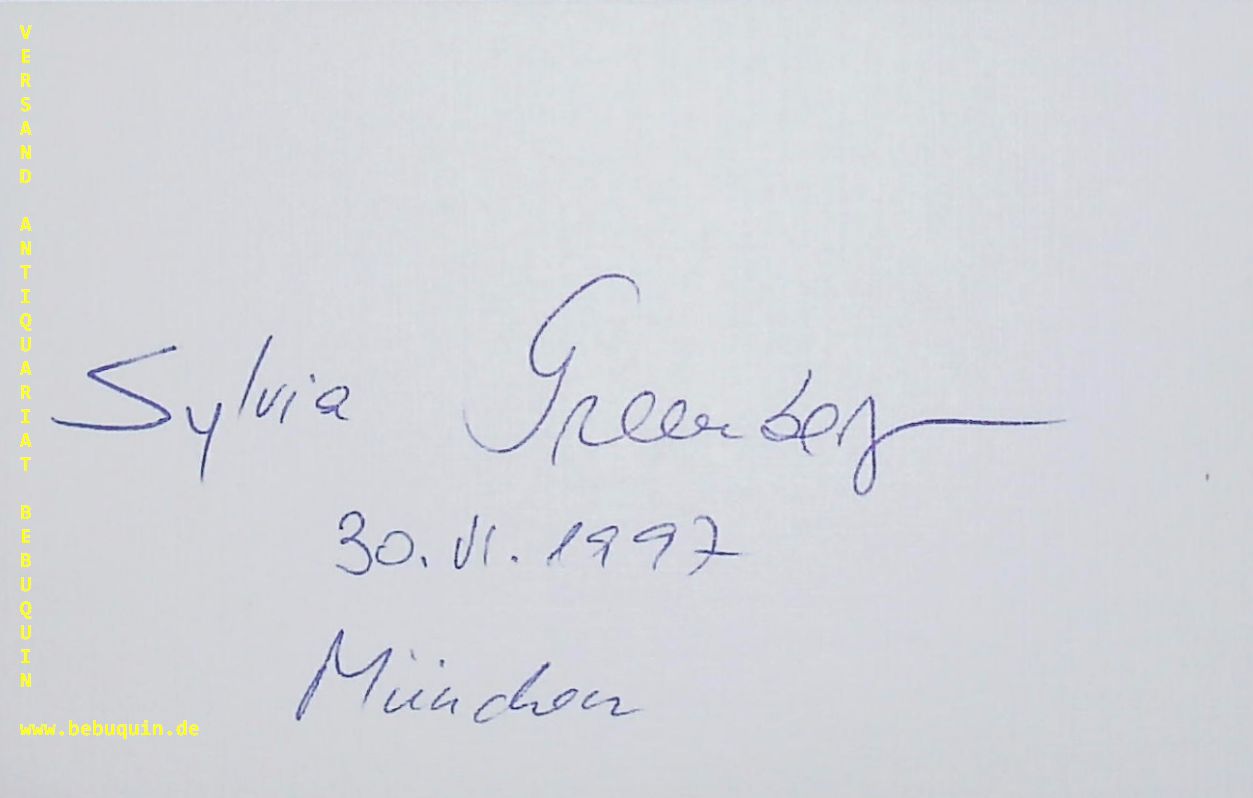 VERSAND ANTIQUARIAT BEBUQUIN
Sylvia Greenberg
30. VI. 1997
München
www.bebuquin.de